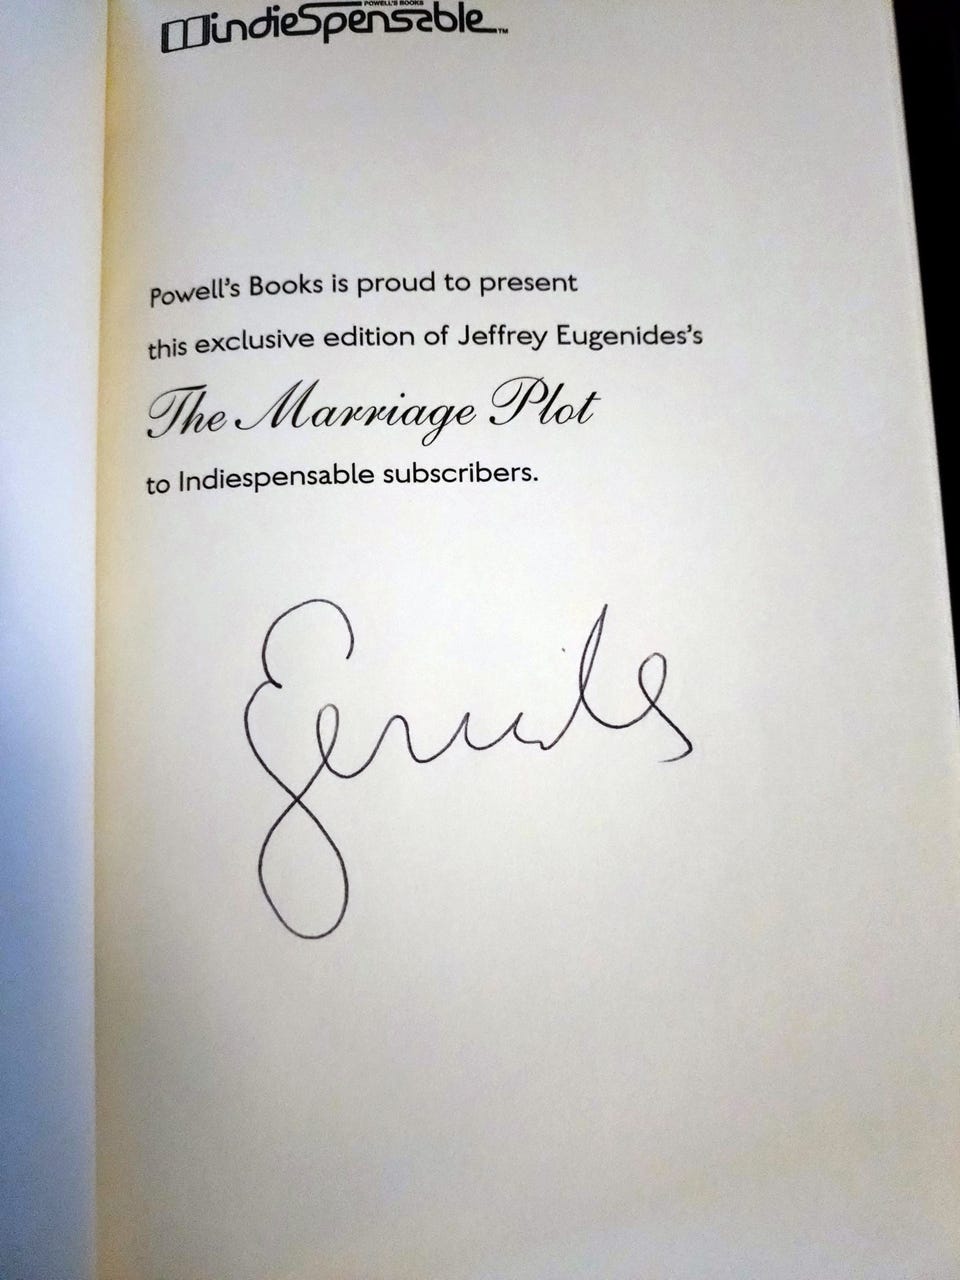 POWELL'S BOOKS
indiespensable™
Powell's Books is proud to present
this exclusive edition of Jeffrey Eugenides's
The Marriage Plot
to Indiespensable subscribers.
Eugenides